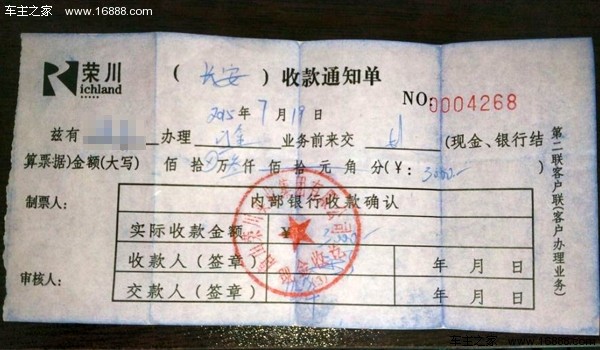 车主之家 www.16888.com
荣川
Richland
(长安)收款通知单
NO:0004268
2015年7月19日
兹有 办理 业务前来交 (现金、银行结
算票据)金额(大写) 佰 拾 万 仟 佰 拾 元 角 分(¥: 3000—
制票人:
内部银行收款确认
实际收款金额 ¥
收款人(签章) 年 月 日
审核人:
交款人(签章) 年 月 日
第二联客户联(客户办理业务)
车主之家 www.16888.com